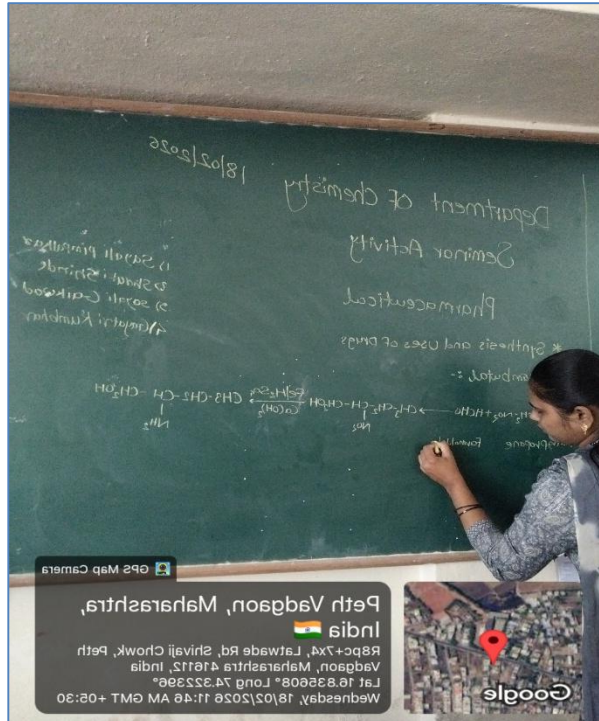 18/02/2026
Department of Chemistry
Seminar Activity
Pharmaceutical
* Synthesis and Uses of Drugs
1) Sayali
2) Shinde
3) Sayali Gaikwad
4) Gayatri Kumbhar
CH₂-NO₂+HCHO → CH₃-CH₂-CH-CH₂OH Fe/H₂SO₄ CH3-CH2-CH-CH₂OH
Ca(OH)₂
NO₂ NH₂
GPS Map Camera
Peth Vadgaon, Maharashtra,
India
Rspc+7x4, Latwade Rd, Shivaji Chowk, Peth
Vadgaon, Maharashtra 416112, India
Lat 16.835608° Long 74.322396°
Wednesday, 18/02/2026 11:46 AM GMT +05:30
Google